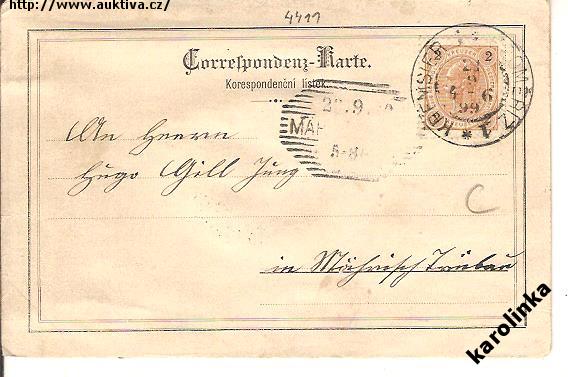 http://www.auktiva.cz/
4411
Correspondenz-Karte.
Korespondenční lístek.
2 2
KREMSIER
KROMĚŘÍŽ
99
1
*
9
MÄH
An Herrn
Hugo Gill Jung
C
in Mährisch Trübau
karolinka